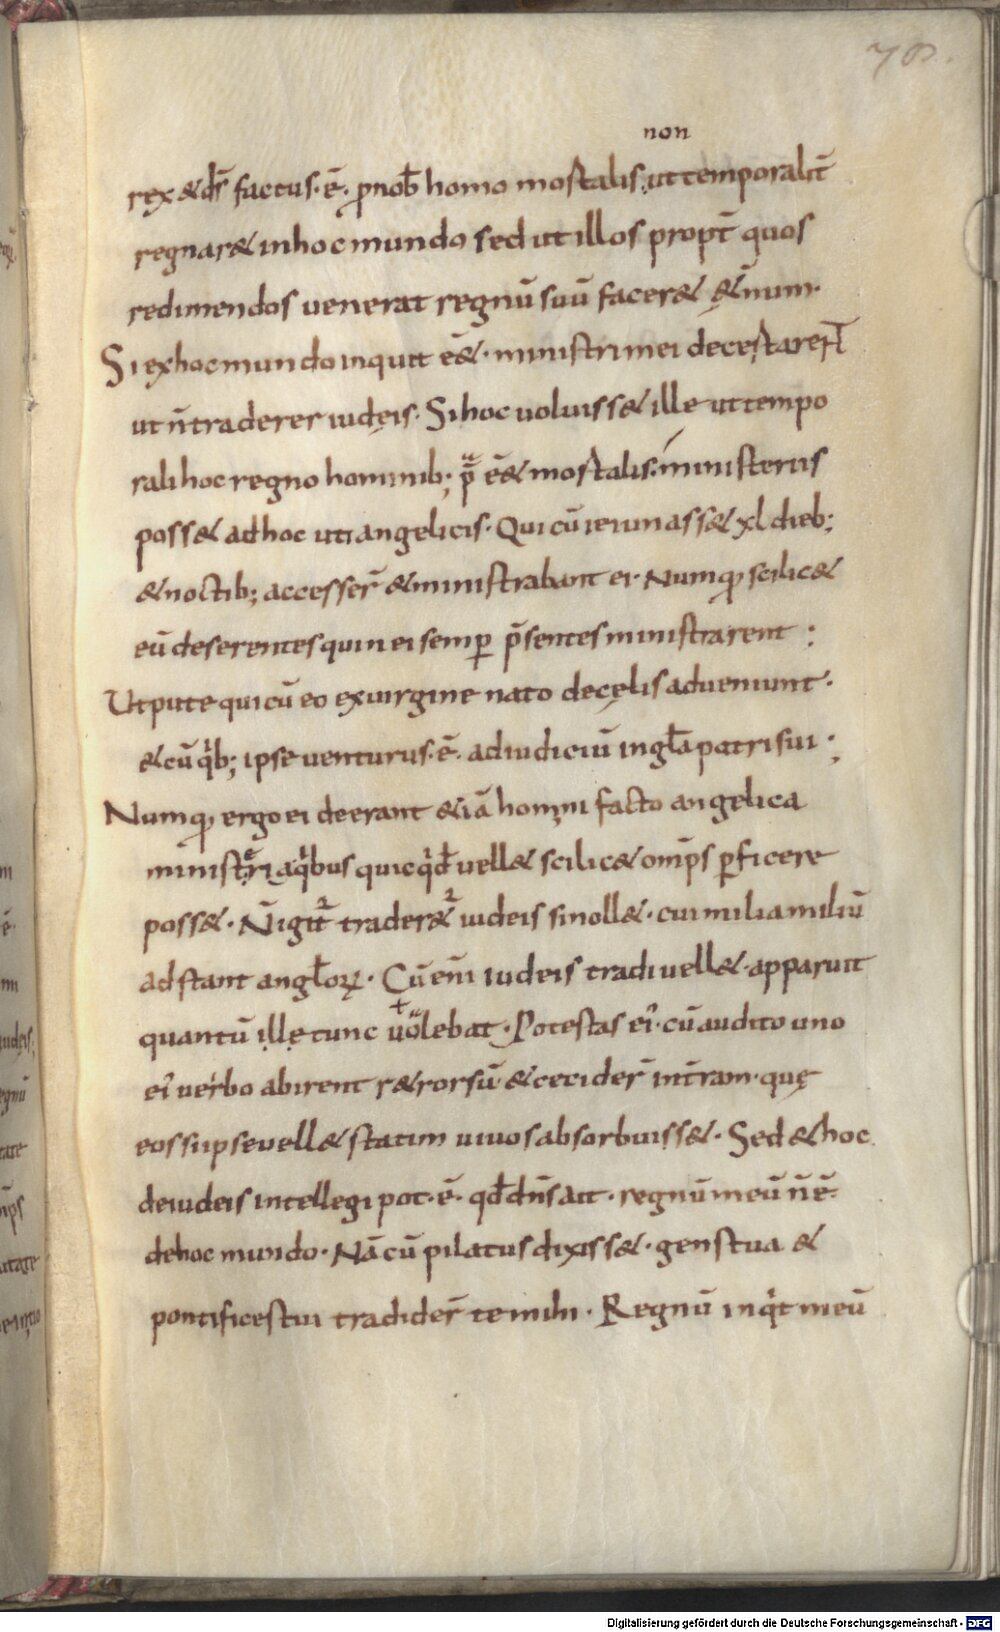 78.
non
rex & d̄s factus·ē· ꝓ nob̄ homo mortalis, ut temporalit̄
regnar& in hoc mundo sed ut illos propt̄ quos
redimendos uenerat regnū suū facer& &̨num·
Si ex hoc mundo inquit ē&· ministri mei decertarent
ut n̄ traderer iudęis· Si hoc uoluiss& ille ut tempo
rali hoc regno hominib; p̄ ē& mortalis· ministeriis
poss& ad hoc uti angelicis· Qui cū ieiunass& xl dieb;
& noctib; accesser̄ & ministrabant ei· Numq scilic&
eū deserentes quin ei semꝑ p̄sentes ministrarent :
Utpute qui cū eo ex uirgine nato de cęlis adueniunt·
& cū qib; ipse uenturus·ē· ad iudiciū in gl̄a patris sui·;
Numq ergo ei deerant & iā homini facto angelica
ministri a qibus quicqid uell& scilic& om̄ps ꝑficere
poss&· N̄ igit trader& iudeis si noll&· cui milia miliū
adstant angl̄orꝝ· Cū eni iudeis tradi uell& apparuit
quantū ille tunc uolebat· Potestas ei· cū audito uno
ei uerbo abirent r&rorsū & cecider̄ in t̄ram· quę
eos si ipse uell& statim uiuos absorbuiss&· Sed & hoc
de iudeis intellegi pot·ē· qd̄ dn̄s ait· regnū meū n̄ ē·
de hoc mundo· Nā cū pilatus dixiss&· gens tua &
pontifices tui tradider̄ te mihi· Regnū inqit meū
Digitalisierung gefördert durch die Deutsche Forschungsgemeinschaft - DFG